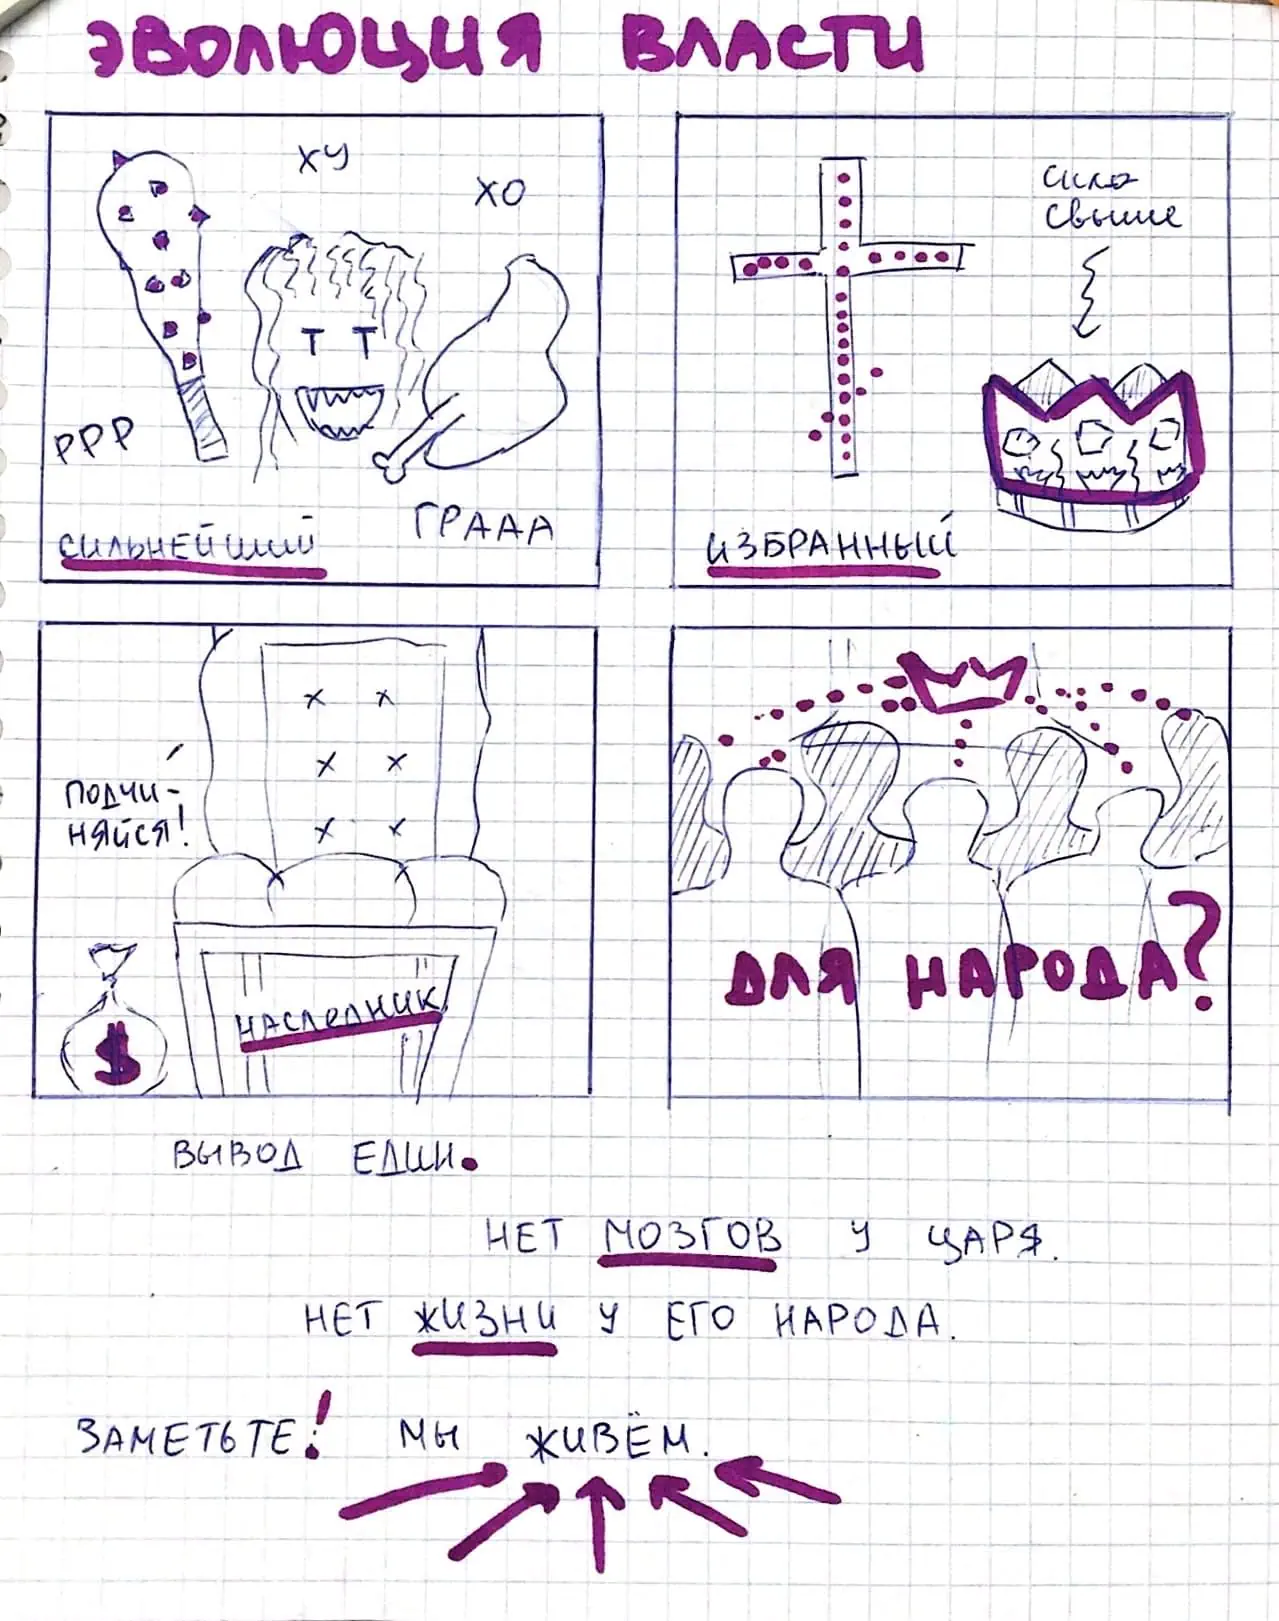 ЭВОЛЮЦИЯ ВЛАСТИ
ХУ
ХО
РРР
ГРААА
СИЛЬНЕЙШИЙ
сила
свыше
ИЗБРАННЫЙ
ПОДЧИ-
НЯЙСЯ!
$
НАСЛЕДНИК
ДЛЯ НАРОДА?
ВЫВОД ЕДИН.
НЕТ МОЗГОВ У ЦАРЯ.
НЕТ ЖИЗНИ У ЕГО НАРОДА.
ЗАМЕТЬТЕ! МЫ ЖИВЁМ.